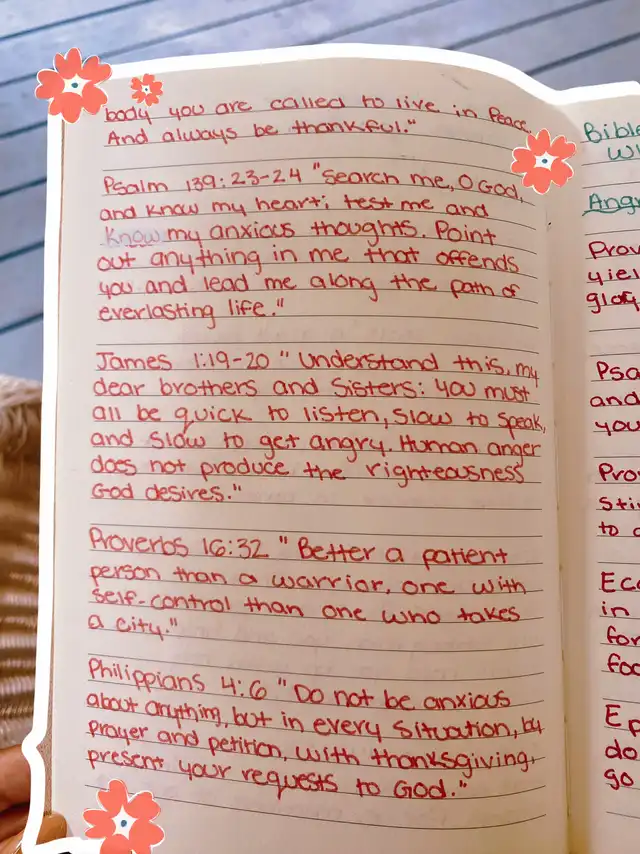 body you are called to live in peace.
And always be thankful."
Psalm 139:23-24 "Search me, O God,
and know my heart; test me and
know my anxious thoughts. Point
out anything in me that offends
you and lead me along the path of
everlasting life."
James 1:19-20 "Understand this, my
dear brothers and sisters: you must
all be quick to listen, slow to speak,
and slow to get angry. Human anger
does not produce the righteousness
God desires."
Proverbs 16:32 "Better a patient
person than a warrior, one with
self-control than one who takes
a city."
Philippians 4:6 "Do not be anxious
about anything, but in every situation, by
prayer and petition, with thanksgiving,
present your requests to God."
Bible
Wh
Angr
Prov
yiel
glor
Psa
and
you
Prov
Stir
to
Ecc
in
for
foo
Ep
do
go